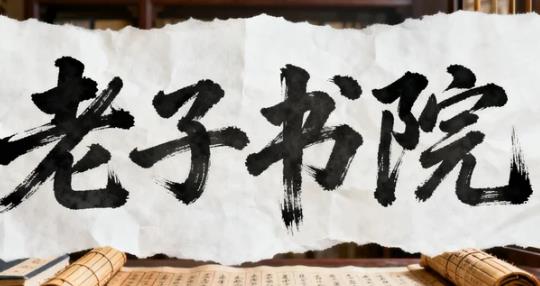 老子书院